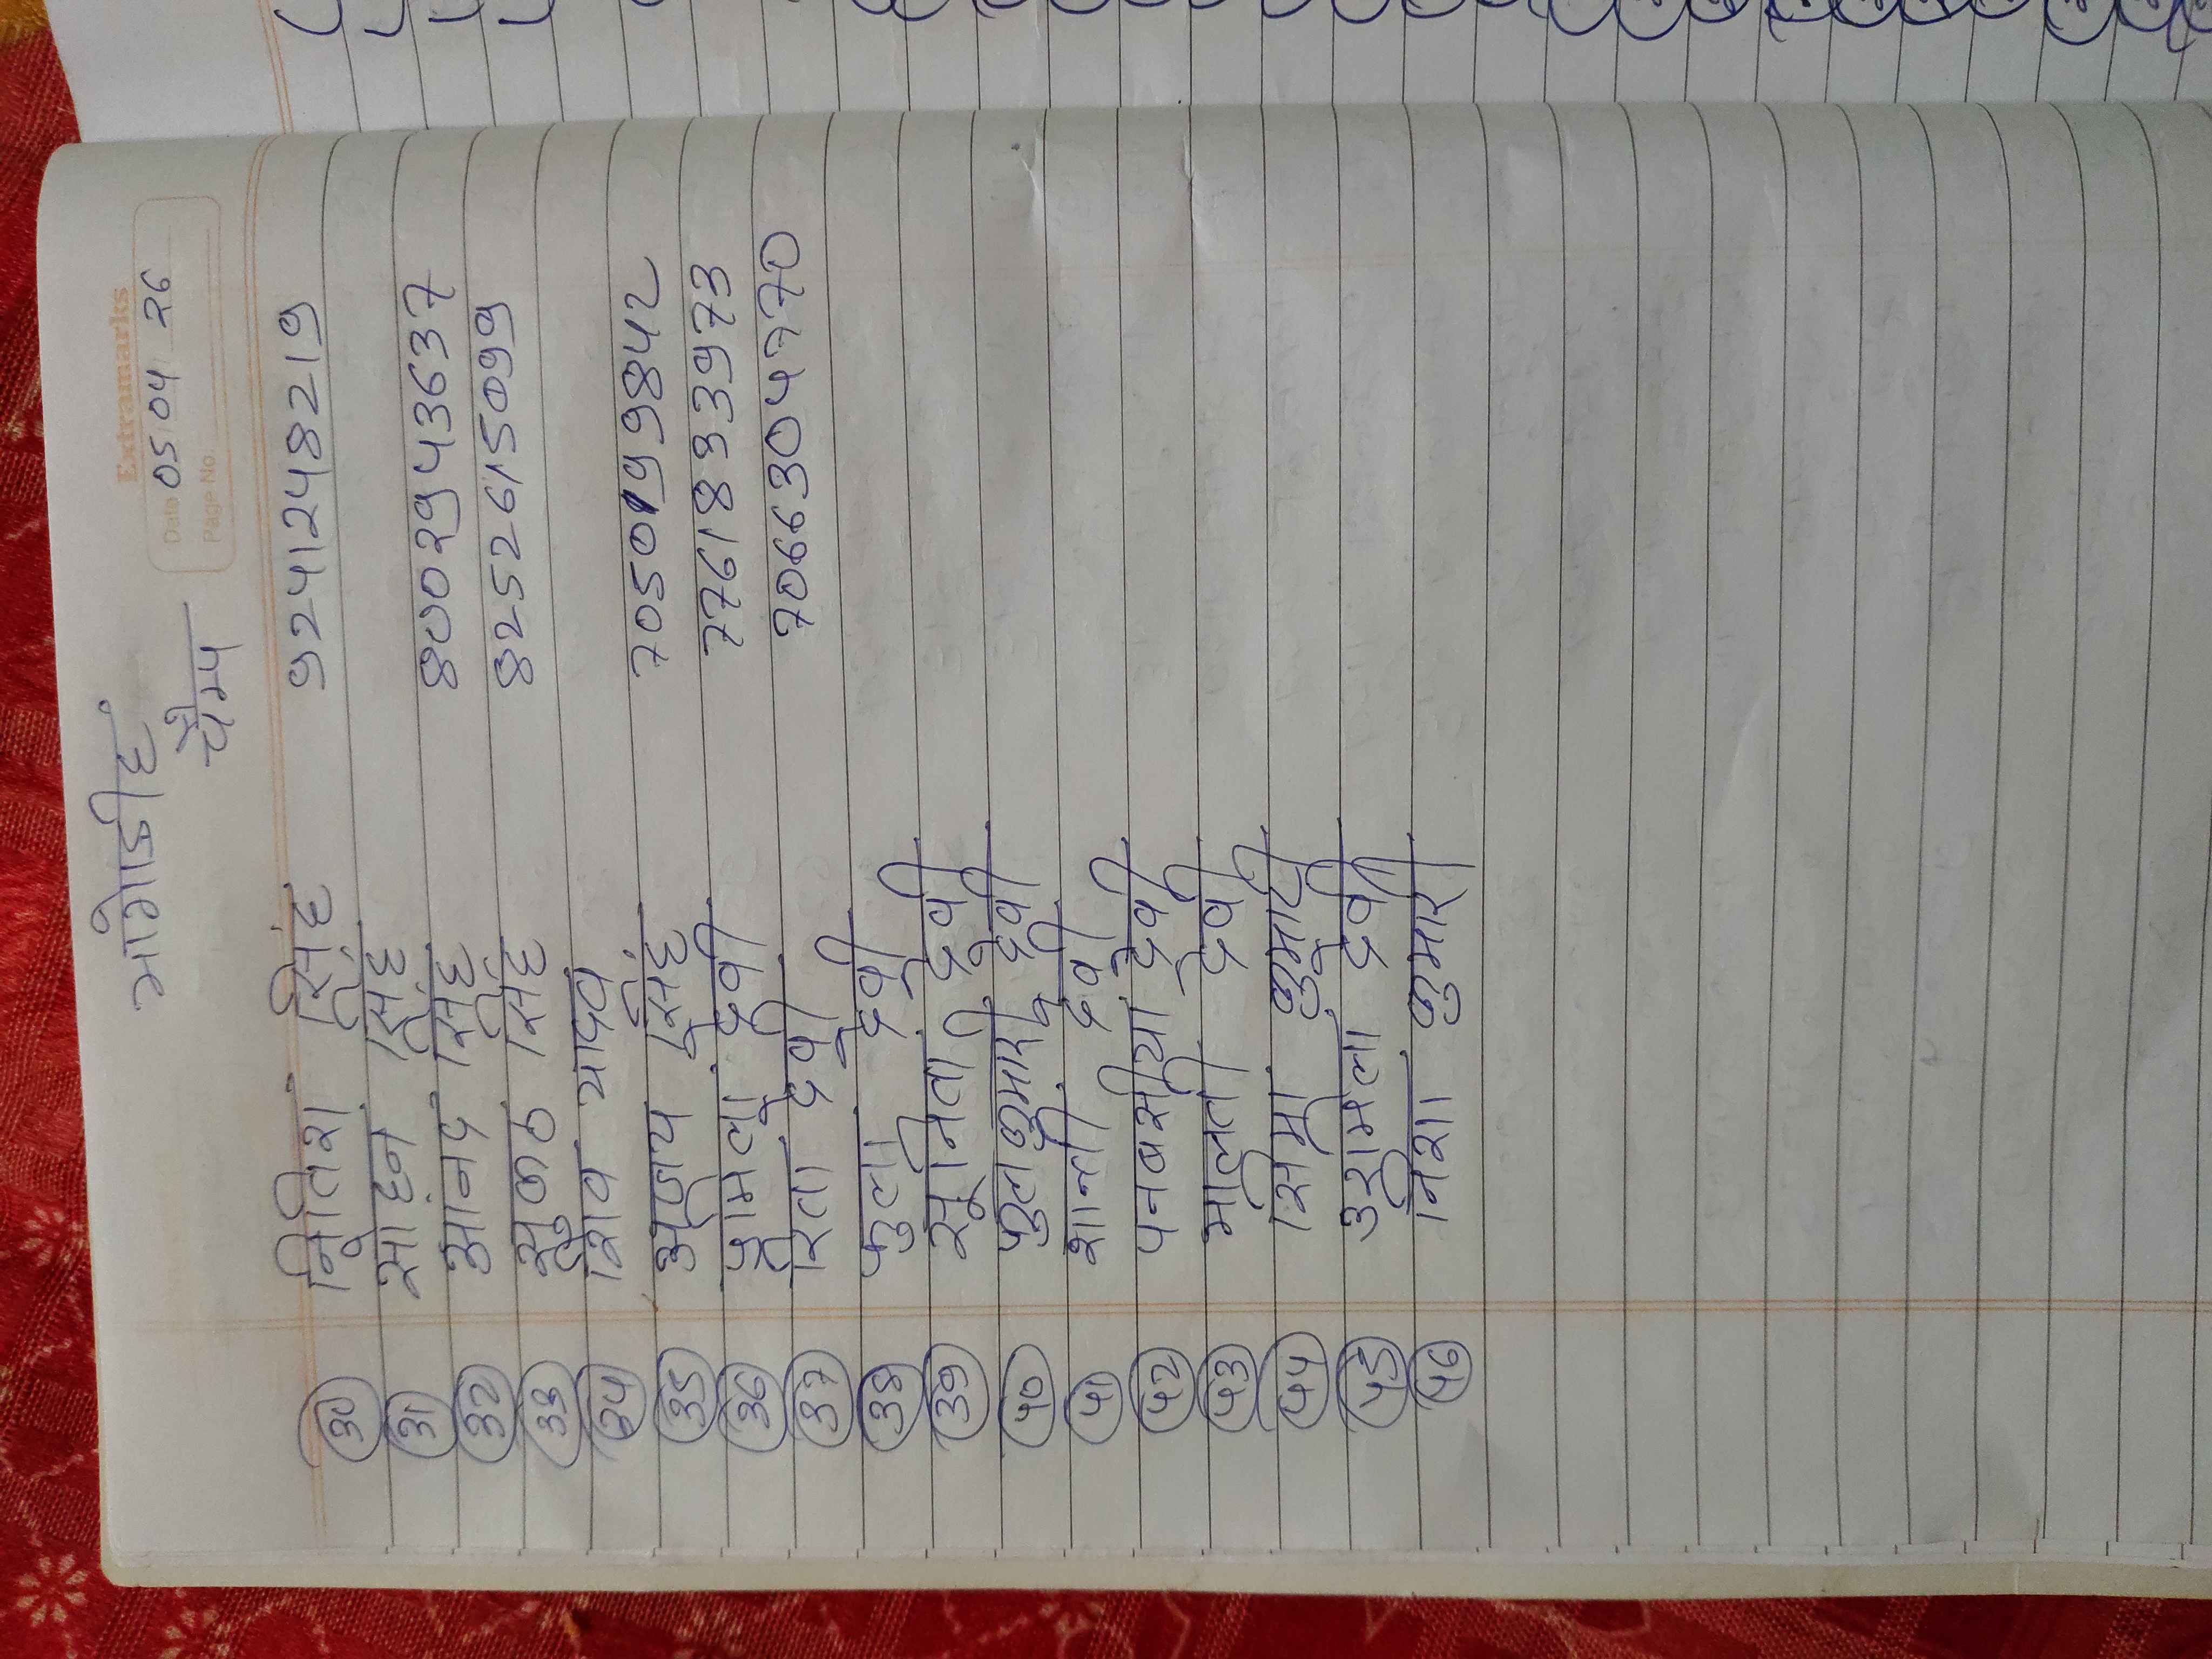 Extramarks
Date 05 04 26
Page No.
भागेडीह
चैम्प
30 नितिश सिंह 9241248219
31 सोहन सिंह
32 आनन्द सिंह 8002943637
33 सिंह 8252615099
34 शिव यादव
35 अजय सिंह 7050199842
36 प्रमिला देवी 7761833973
37 रिता देवी 7066304770
38 फुला देवी
39 सुनिता देवी
40 फुलकुमारी देवी
41 शान्ती देवी
42 पनवसीया देवी
43 मालती देवी
44 सिमा कुमारी
45 उरमिला देवी
46 निशा कुमारी